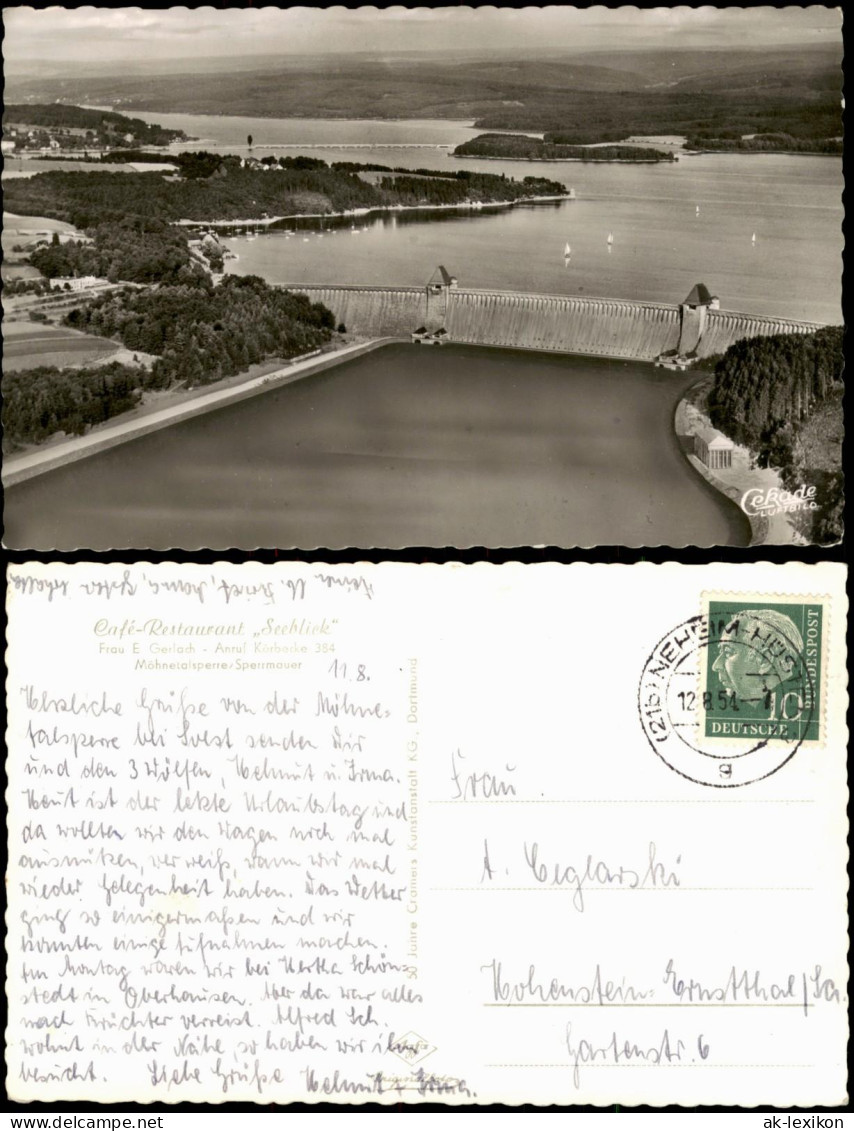 Cekade
LUFTBILD
Café-Restaurant „Seeblick"
Frau E. Gerlach - Anruf Körbecke 384
Möhnetalsperre-Sperrmauer
11.8.
Herzliche Grüße von der Möhne-
talsperre bei Soest senden Dir
und den 3 Wölfen, Helmut u. Irma.
Heut ist der letzte Urlaubstag und
da wollten wir den Wagen noch mal
ausnützen, wer weiß, wann wir mal
wieder Gelegenheit haben. Das Wetter
ging so einigermaßen und wir
konnten einige Aufnahmen machen.
Am Montag waren wir bei Hertha Schön-
stedt in Oberhausen. Aber da war alles
nach verreist. Alfred Sch.
wohnt in der Nähe, so haben wir ihn
besucht. Liebe Grüße Helmut + Irma.
50 Jahre Cramers Kunstanstalt KG., Dortmund
(21b) NEHEIM-HÜSTEN
12.8.54.-7
g
DEUTSCHE
BUNDESPOST
10
Frau
A. Ceglarski
Hohenstein-Ernstthal/Sa.
Gartenstr. 6
ak-lexikon